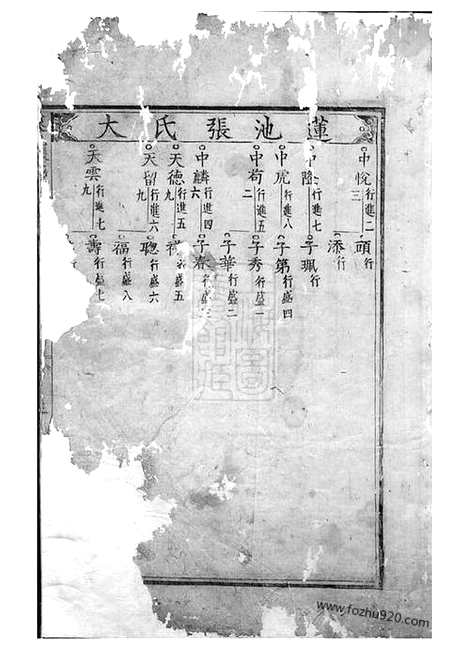 蓮池張氏大
中悅行進二
三
頭行
添行
中隆行進七
子珮行
中虎行進八
子第行盛四
中荀行進五
二
子秀行盛一
子華行盛二
中麟行進四
六
子春行盛三
天德行進五
九
行盛五
天留行進六
九
聰行盛六
福行盛八
天雲行進七
九
壽行盛七
www.fozhu920.com